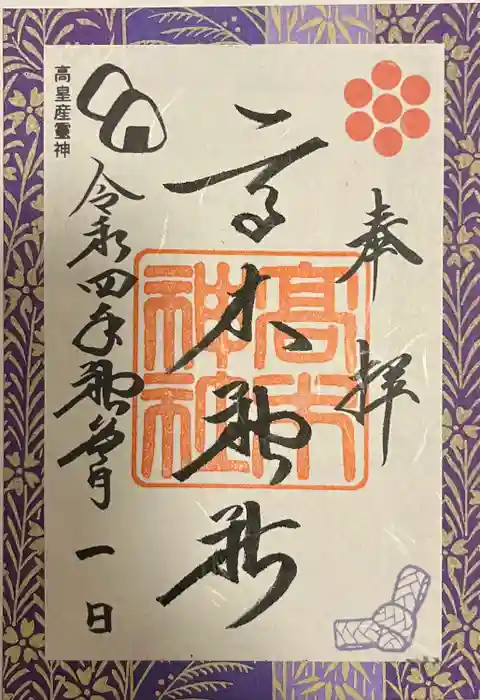 奉拝
高木神社
高木
神社
高皇産靈神
令和四年神無月一日